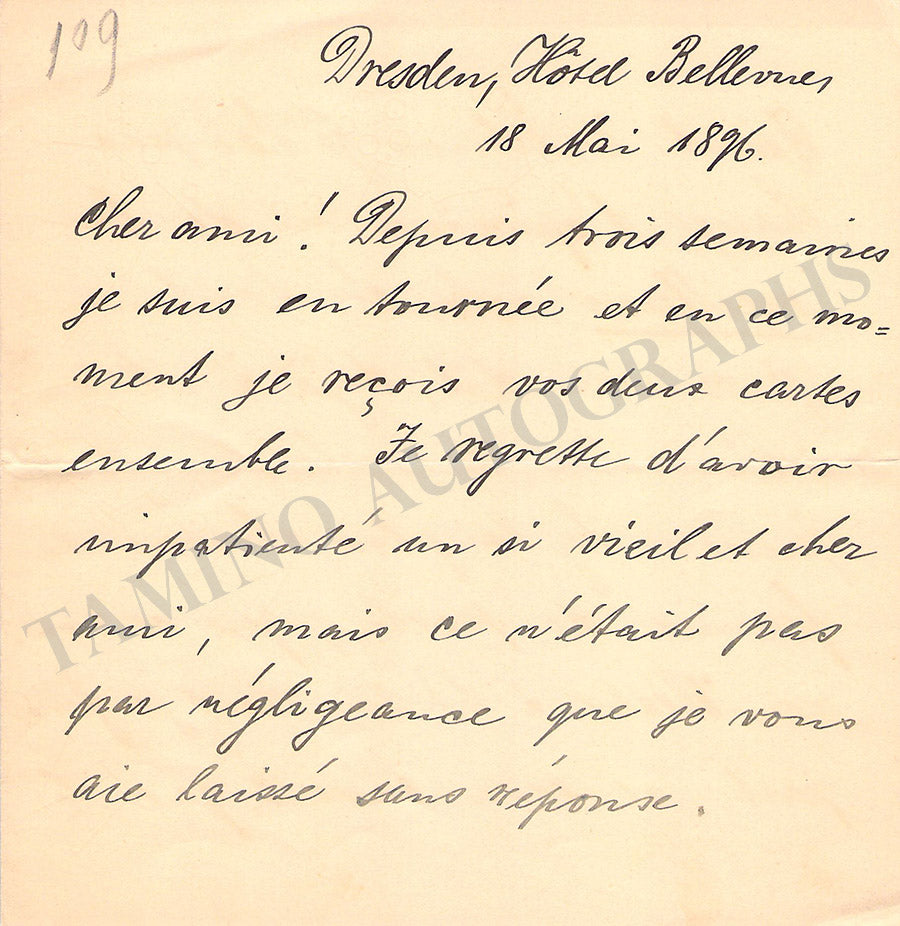 109
Dresden, Hôtel Bellevue,
18 Mai 1896.
Cher ami ! Depuis trois semaines
je suis en tournée et en ce mo=
ment je reçois vos deux cartes
ensemble. Je regrette d'avoir
impatienté un si vieil et cher
ami, mais ce n'était pas
par négligeance que je vous
aie laissé sans réponse.
TAMINO AUTOGRAPHS